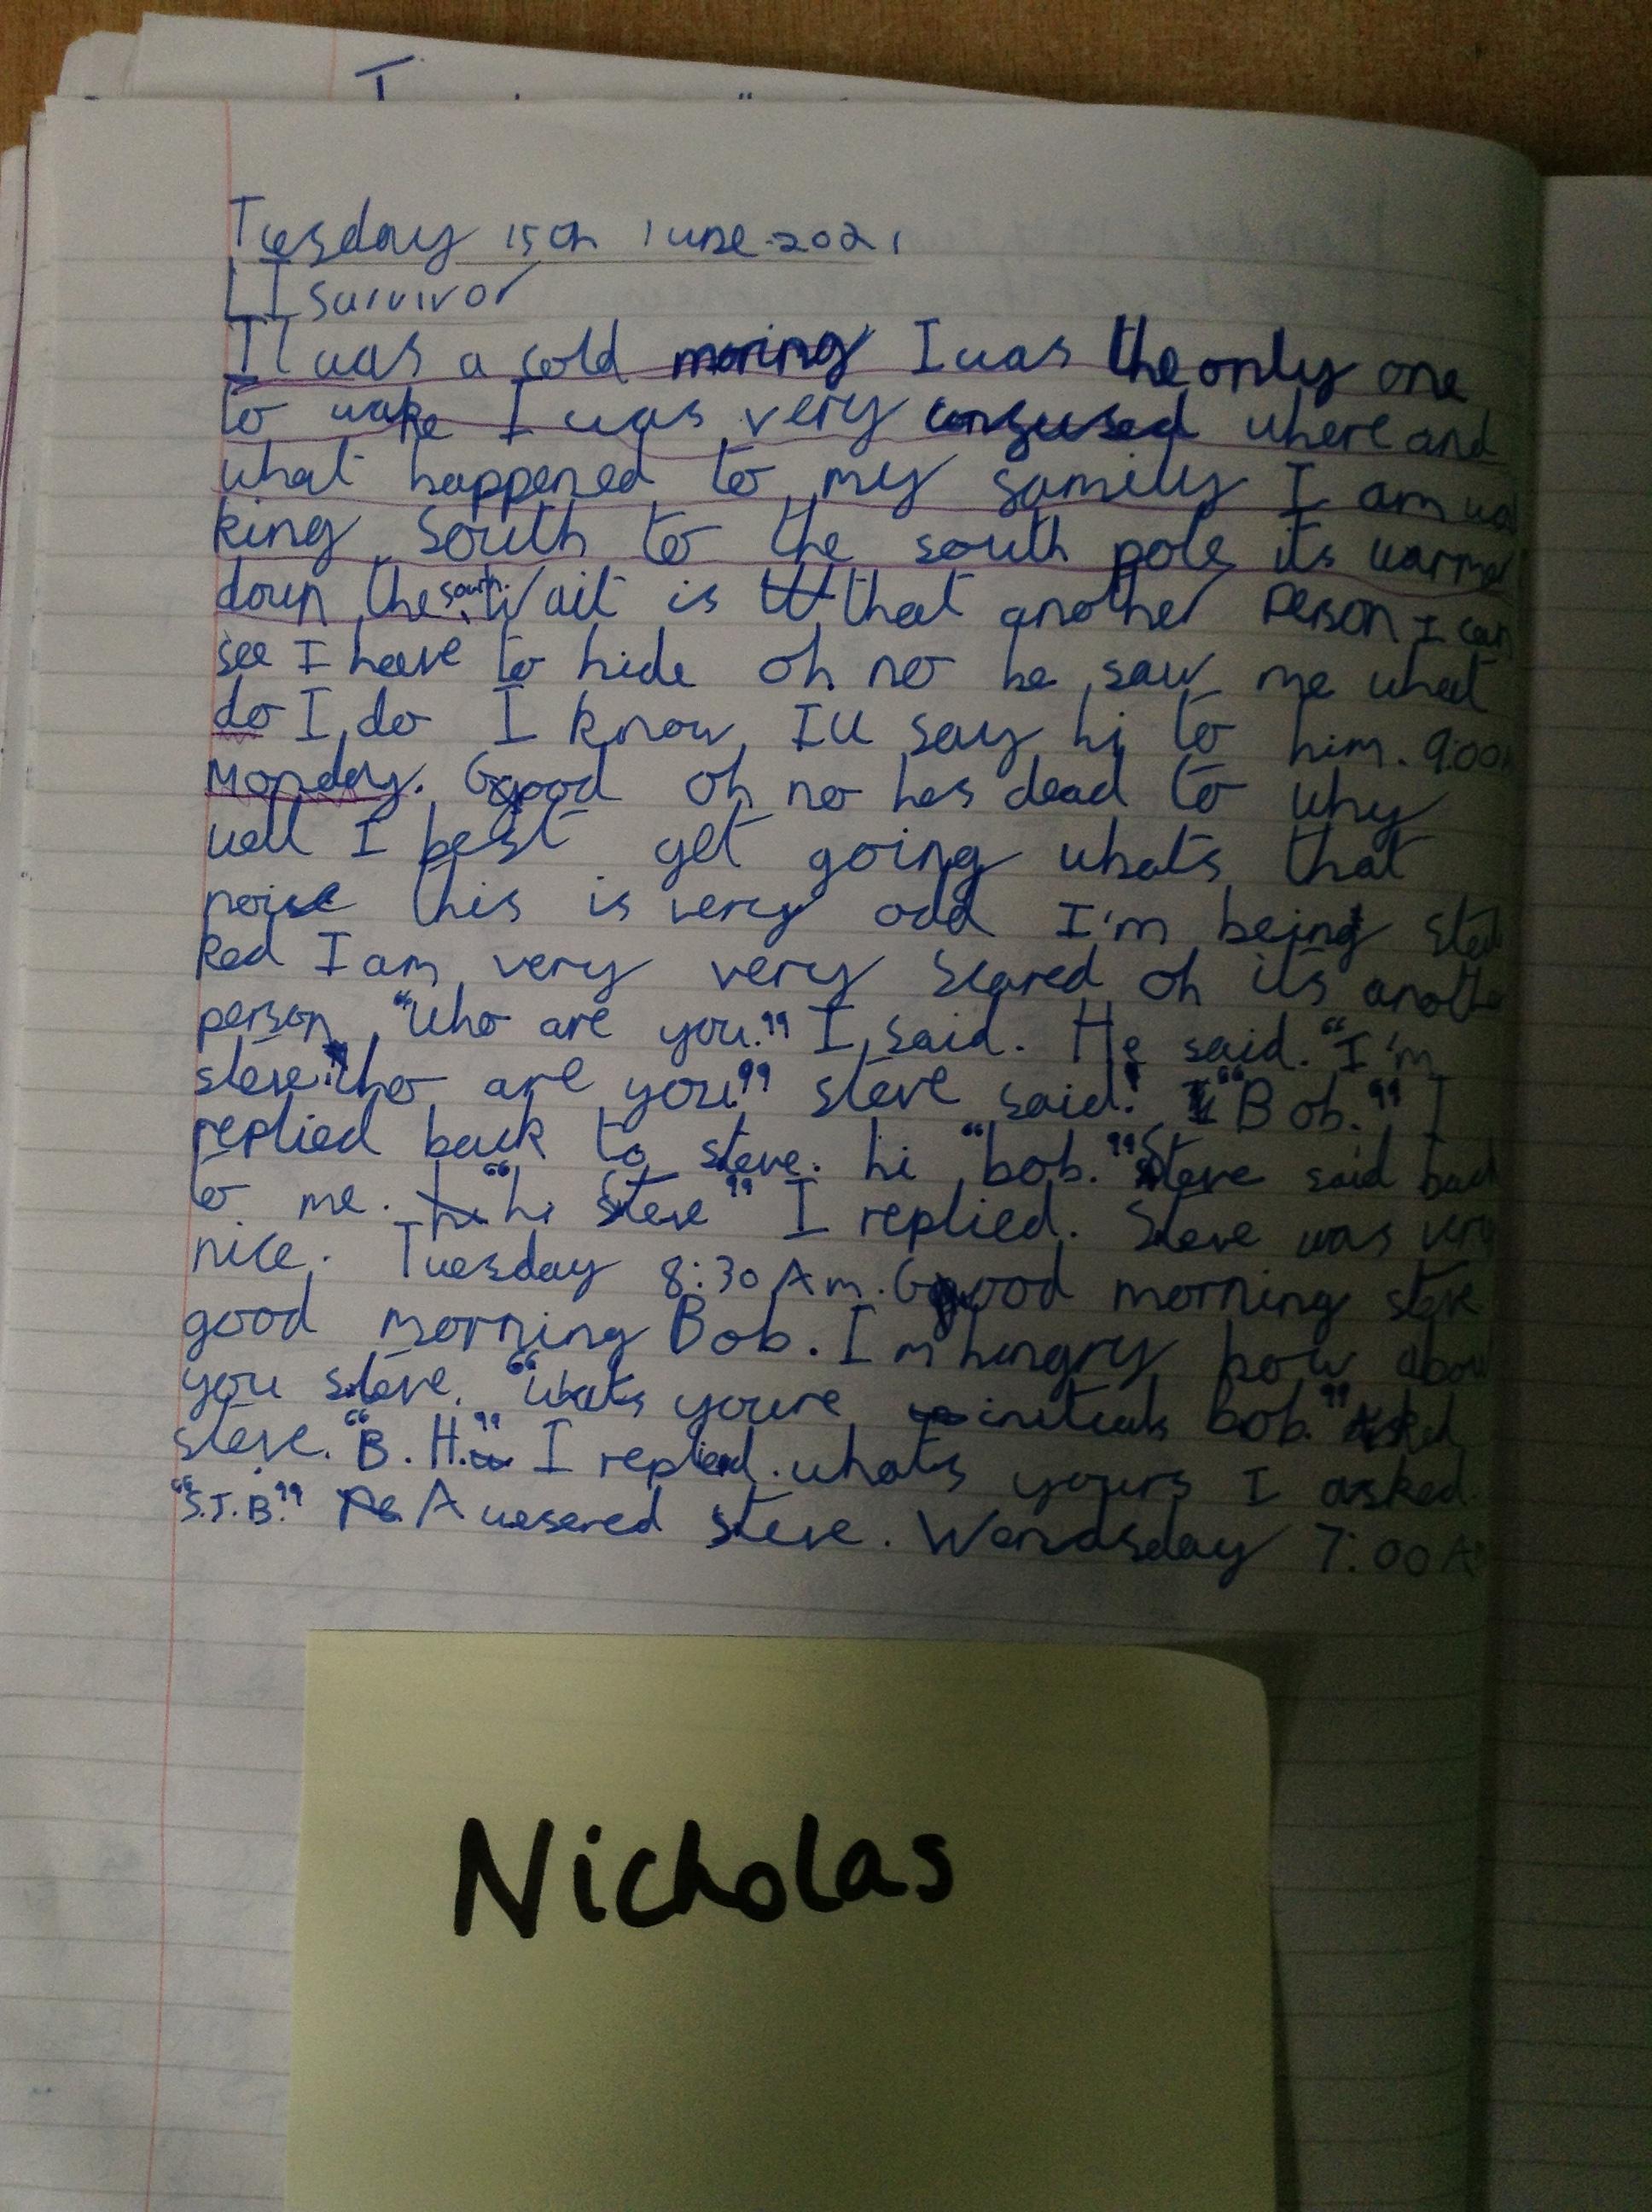 Tuesday 15th June 2021
LI survivor
It was a cold moring I was the only one
to wake I was very confused where and
what happened to my family I am wal
king south to the south pole its warmer
down the south. Wait is that another person I can
see I have to hide oh no he saw me what
do I do I know Ill say hi to him. 9:00
Monday. Good oh no hes dead to why
well I best get going whats that
noise this is very odd I'm being stal
ked I am very very scared oh its another
person "who are you." I said. He said. "I'm
steve." who are you." steve said. "Bob." I
replied back to steve. hi "bob." Steve said back
to me. "hi Steve" I replied. Steve was very
nice. Tuesday 8:30 Am. Good morning steve
good morning Bob. Im hungry how about
you steve. "whats youre initials bob." Asked
steve. "B.H." I replied. whats yours I asked.
"S.J.B." Awesered steve. Wendsday 7:00 A
Nicholas